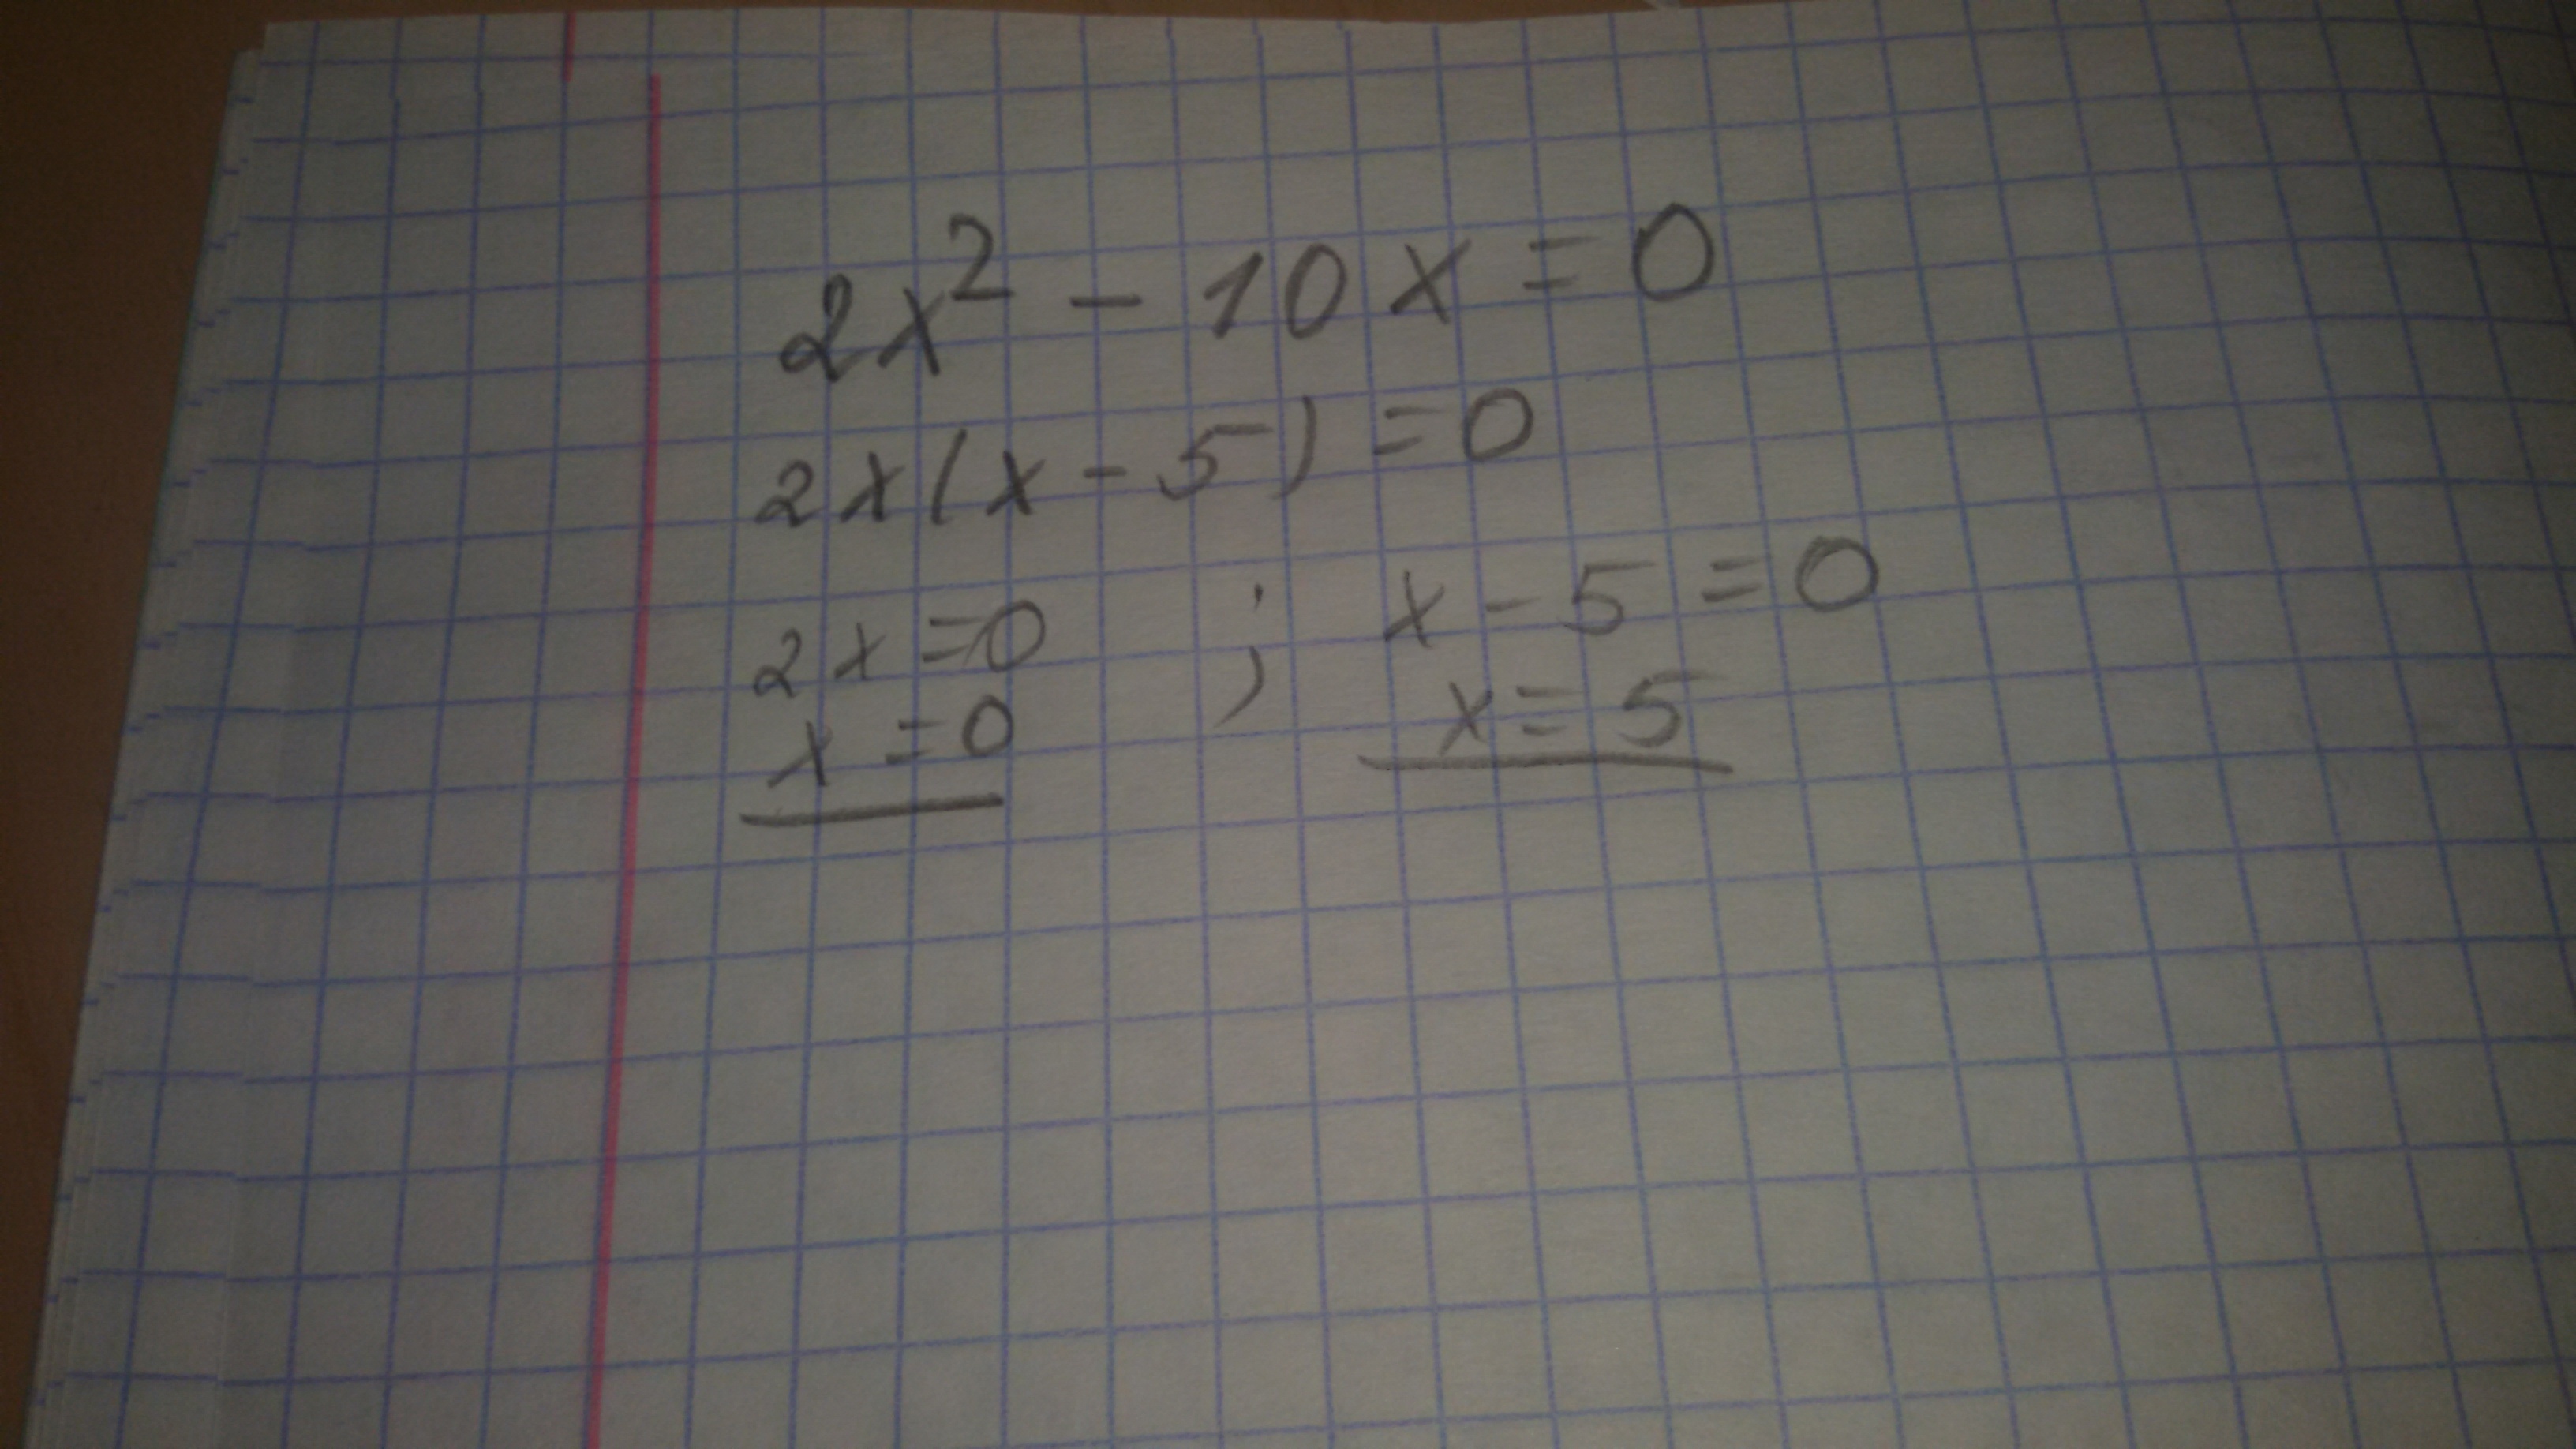 2x² - 10x = 0
2x(x - 5) = 0
2x = 0 ; x - 5 = 0
x = 0 x = 5